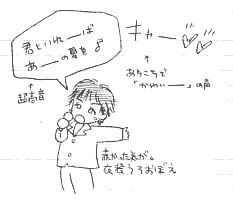 君といれーーば
あーーの夏を♪
↑
超高音
キャー♡♡
↑
あちこちで
「かわいーー」の声
赤かった気が。
衣装うろおぼえ